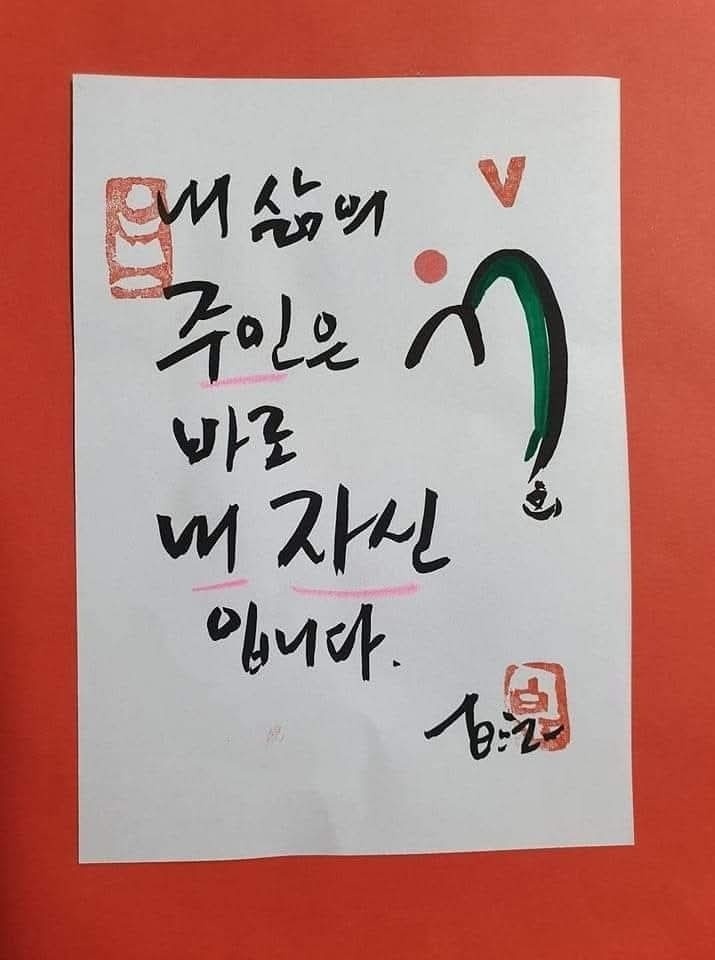 내 삶의
주인은
바로
내 자신
입니다.